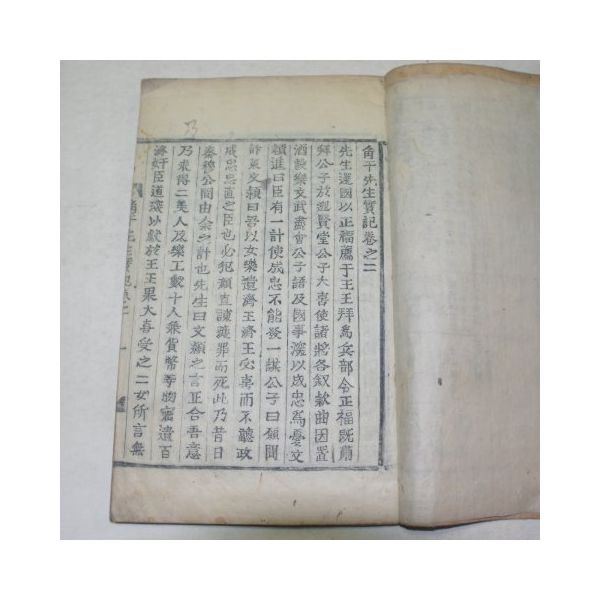 角干先生實記卷之二
先生還國以正福薦于王王拜爲兵部令正福旣肅
拜公子於迎賢堂公子大喜使諸將各叙款曲因置
酒設樂文武盡會公子語及國事深以成忠爲憂文
穎進曰臣有一計使成忠不能發一謀公子曰願聞
計策文穎曰吾以女樂遺濟王濟王必喜而不聽政
成忠忠直之臣也必犯顔直諫獲罪而死此乃昔日
秦穆公間由余之計也先生曰文穎之言正合吾意
乃求得二美人及樂工數十人乘貨幣等物密遺百
濟奸臣道瓊以獻於王王果大喜受之二女所言無
角干先生實記卷之二
一
乃